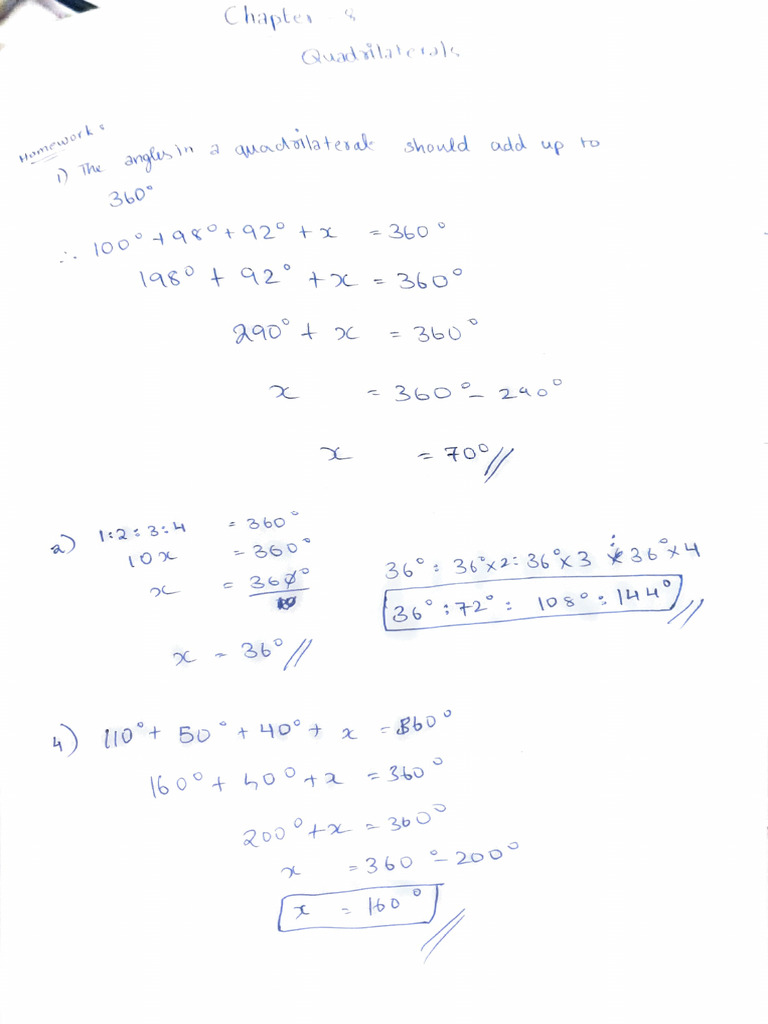 Chapter - 8
Quadrilaterals
Homeworks
1) The angles in a quadrilateral should add up to
360°
∴ 100° + 98° + 92° + x = 360°
198° + 92° + x = 360°
290° + x = 360°
x = 360° - 290°
x = 70° //
2) 1:2:3:4 = 360°
10x = 360°
x = 360°/10
x = 36° //
36° : 36°×2 : 36°×3 : 36°×4
36° : 72° : 108° : 144° //
4) 110° + 50° + 40° + x = 360°
160° + 40° + x = 360°
200° + x = 360°
x = 360° - 200°
x = 160° //